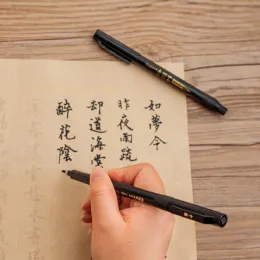 如夢令
昨夜雨疏
却道海棠
醉花陰